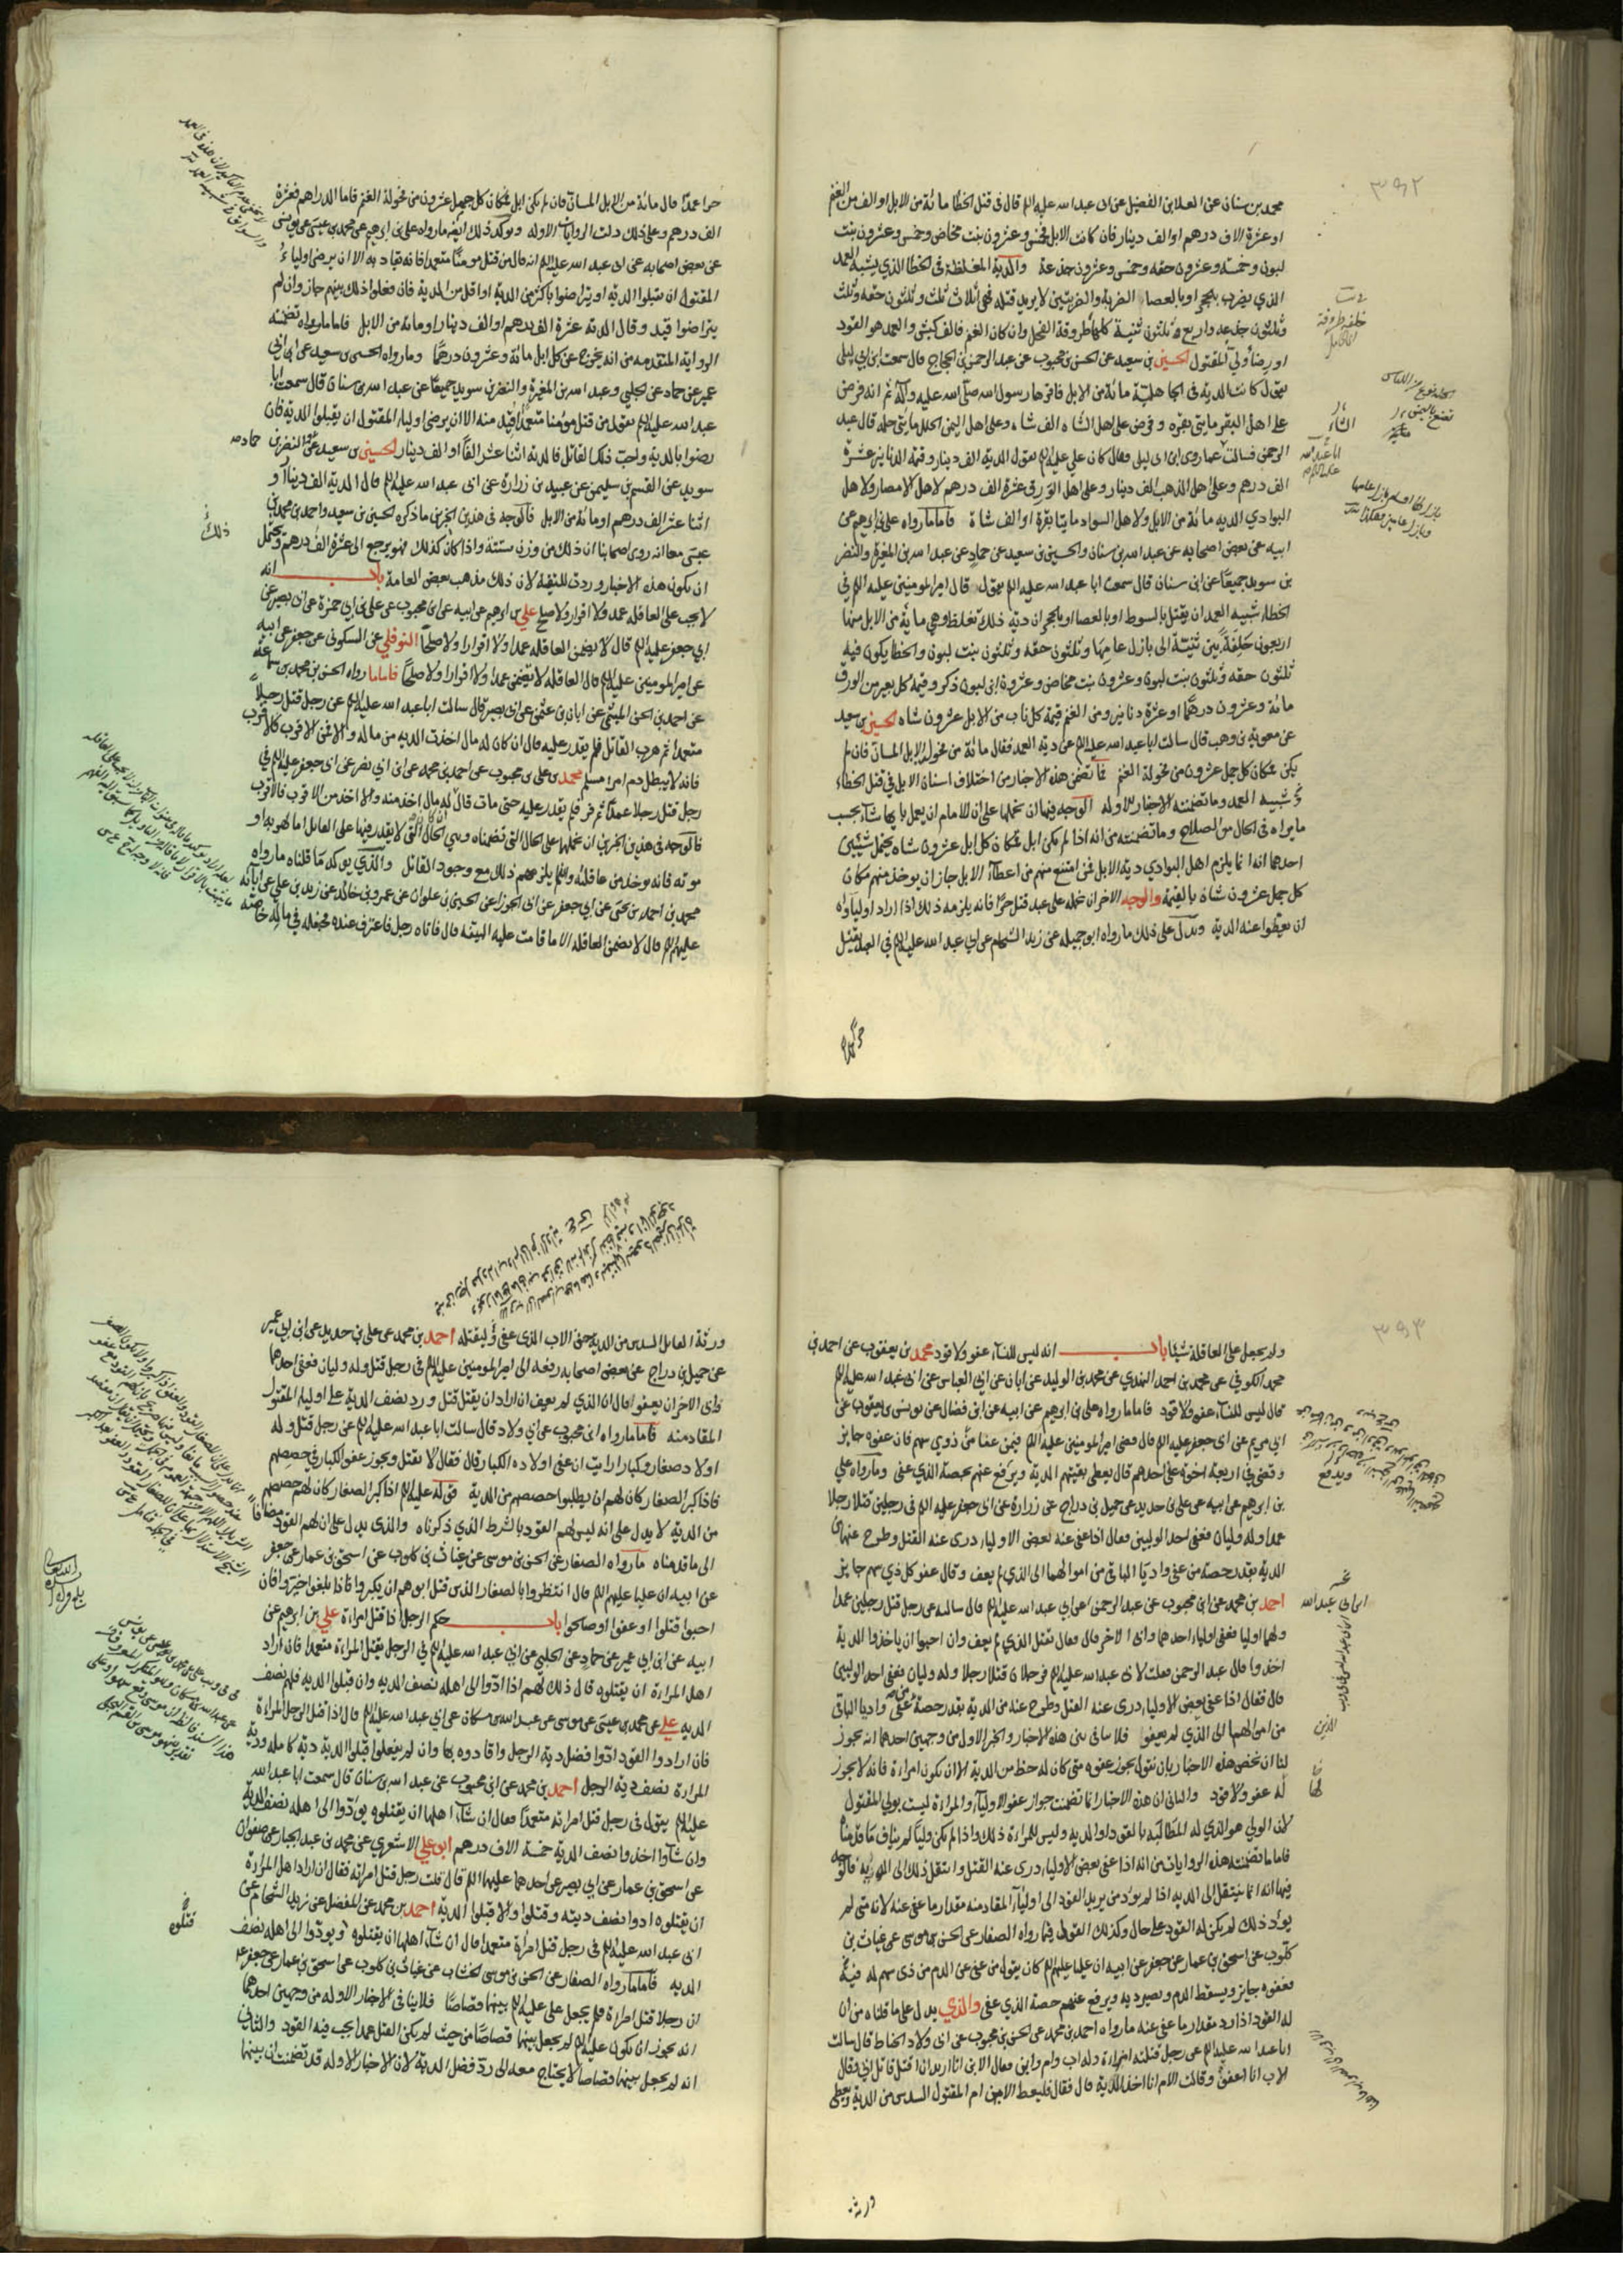 ٣٩٢
محمد بن سنان عن العلا بن الفضيل عن ابى عبد الله عليه الم قال فى قتل الخطا مائة من الابل او الف من الغنم
او عشرة الاف درهم او الف دينار فان كانت الابل فخمس وعشرون بنت مخاض وخمس وعشرون بنت
لبون وخمسة وعشرون حقه وخمس وعشرون جذعة والدية المغلظة فى الخطا الذي يشبه العمد
الذي يضرب بالحجر او بالعصا الضربة والضربتين لا يريد قتله فهى اثلاث ثلث وثلثون حقه وثلث
وثلثون جذعه واربع وثلثون ثنية كلها طروقة الفحل وان كان الغنم فالف كبش والعمد هو القود
او رضا ولي المقتول الحسين بن سعيد عن الحسن بن محبوب عن عبد الرحمن بن الحجاج قال سمعت ابن ابي ليلى
يقول كانت الدية فى الجاهلية مائة من الابل فاقرها رسول الله صلى الله عليه وآله ثم انه فرض
على اهل البقر مايتى بقره وفرض على اهل الشاه الف شاه وعلى اهل اليمن الحلل مايتى حله قال عبد
الرحمن فسالت عما روى ابن ابى ليلى فقال كان علي عليه الم يقول الدية الف دينار وقيمة الدنانير عشرة
الف درهم وعلى اهل الذهب الف دينار وعلى اهل الورق عشرة الف درهم لاهل الامصار ولاهل
البوادي الديه مائة من الابل ولاهل السواد مايتا بقرة او الف شاة فاما ما رواه على بن ابرهيم عن
ابيه عن بعض اصحابه عن عبد الله بن سنان والحسين بن سعيد عن حماد عن عبد الله بن المغيرة والنضر
بن سويد جميعا عن ابن سنان قال سمعت ابا عبد الله عليه الم يقول قال امير المومنين عليه الم فى
الخطا شبيه العمد ان يقتل بالسوط او بالعصا او بالحجر ان دية ذلك تغلظ وهي مائة من الابل منها
اربعون خلفة بين ثنية الى بازل عامها وثلثون حقه وثلثون بنت لبون والخطا يكون فيه
ثلثون حقه وثلثون بنت لبون وعشرون بنت مخاض وعشرون ابن لبون ذكر وقيمة كل بعير من الورق
مائة وعشرون درهما او عشرة دنانير ومن الغنم قيمة كل ناب من الابل عشرون شاه الحسين بن سعيد
عن معوية بن وهب قال سالت ابا عبد الله عليه الم عن دية العمد فقال مائة من فحولة الابل المسان فان لم
يكن فمكان كل جمل عشرون من فحولة الغنم فما تضمن هذه الاخبار من اختلاف اسنان الابل فى قتل الخطاء
شبيه العمد وما تضمنته الاخبار الاوله الوجه فيها ان نحملها على ان للامام ان يعمل بايها شاء بحسب
ما يراه فى الحال من الصلاح وما تضمنته من انه اذا لم يكن ابل فمكان كل ابل عشرون شاه يحتمل شيئين
احدهما انه انما يلزم اهل البوادي دية الابل فمن امتنع منهم من اعطاء الابل جاز ان يوخذ منهم مكان
كل جمل عشرون شاة بالقيمة والوجه الاخر ان نحمله على عبد قتل حرا فانه يلزمه ذلك اذا اراد اولياؤه
ان يعطوا عنه الدية ويدل على ذلك ما رواه ابو جميله عن زيد الشحام عن ابى عبد الله عليه الم فى العبد يقتل
حرا عمدا
حرا عمدا قال مائة من الابل المسان فان لم يكن ابل فمكان كل جمل عشرون من فحولة الغنم فاما الدراهم فعشرة
الف درهم وعلى ذلك دلت الروايات الاوله ويوكد ذلك ايضا ما رواه على بن ابرهيم عن محمد بن عيسى عن يونس
عن بعض اصحابه عن ابى عبد الله عليه الم انه قال من قتل مومنا متعمدا فانه يقاد به الا ان يرضى اولياء
المقتول ان يقبلوا الدية او يتراضوا باكثر من الدية او اقل من الدية فان فعلوا ذلك بينهم جاز وان لم
يتراضوا قيد وقال الدية عشرة الف درهم او الف دينار او مائة من الابل فاما ما رواه تضمنته
الرواية المتقدمه من انه يخرج عن كل ابل مائة وعشرون درهما وما رواه الحسين بن سعيد عن ابن ابى
عمير عن حماد عن الحلبي وعبد الله بن المغيرة والنضر بن سويد جميعا عن عبد الله بن سنان قال سمعت ابا
عبد الله عليه الم يقول من قتل مومنا متعمدا اقيد منه الا ان يرضى اولياء المقتول ان يقبلوا الدية فان
رضوا بالدية واحب ذلك القاتل فالدية اثنا عشر الفا او الف دينار الحسين بن سعيد عن النضر بن
سويد عن القسم بن سليمن عن عبيد بن زرارة عن ابى عبد الله عليه الم قال الدية الف دينار او
اثنا عشر الف درهم او مائة من الابل فالوجه فى هذين الخبرين ما ذكره الحسين بن سعيد واحمد بن محمد بن
عيسى معا انه روى اصحابنا ان ذلك من وزن ستة واذا كان كذلك فهو يرجع الى عشرة الف درهم ويحتمل
ان يكون هذه الاخبار وردت للتقية لان ذلك مذهب بعض العامة باب انه
لا يجب على العاقله عمد ولا اقرار ولا صلح علي بن ابرهيم عن ابيه عن ابن محبوب عن على بن ابي حمزة عن ابى بصير عن
ابى جعفر عليه الم قال لا يضمن العاقلة عمدا ولا اقرارا ولا صلحا النوفلي عن السكونى عن جعفر عن ابيه
عن امير المومنين عليه الم قال العاقله لا يضمن عمدا ولا اقرارا ولا صلحا فاما ما رواه الحسن بن محمد بن سماعة
عن احمد بن الحسن الميثمي عن ابان بن عثمن عن ابى بصير قال سالت ابا عبد الله عليه الم عن رجل قتل رجلا
متعمدا ثم هرب القاتل فلم يقدر عليه قال ان كان له مال اخذت الدية من ماله والا فمن الاقرب فالاقرب
فانه لا يبطل دم امرئ مسلم محمد بن على بن محبوب عن احمد بن محمد عن ابن ابى نصر عن ابى جعفر عليه الم فى
رجل قتل رجلا عمدا ثم فر فلم يقدر عليه حتى مات قال ان كان له مال اخذ منه والا اخذ من الاقرب فالاقرب
فالوجه فى هذين الخبرين ان نحملها على الحال التى تضمناه وهي الحال التى لا يقدر فيها على القاتل اما لهربه او
موته فانه يوخذ من عاقلته ولا يلزمهم ذلك مع وجود القاتل والذي يوكد ما قلناه ما رواه
محمد بن احمد بن يحيى عن ابى جعفر عن ابى الجوزا عن الحسين بن علوان عن عمرو بن خالد عن زيد بن على عن ابائه
عليهم الم قال لا يضمن العاقله الا ما قامت عليه البينه قال فاتاه رجل فاعترف عنده فجعله فى ماله خاصة
٣٩٣
ولم يجعل على العاقلة شيئا باب انه ليس للنساء عفو ولا قود محمد بن يعقوب عن احمد بن
محمد الكوفي عن محمد بن احمد النهدي عن محمد بن الوليد عن ابان عن ابى العباس عن ابى عبد الله عليه الم
قال ليس للنساء عفو ولا قود فاما ما رواه على بن ابرهيم عن ابيه عن ابن فضال عن يونس بن يعقوب عن
ابى مريم عن ابى جعفر عليه الم قال قضى امير المومنين عليه الم فيمن عفا من ذوي سهم فان عفوه جايز
وقضى فى اربعة اخوة عفى احدهم قال يعطى بقيتهم الدية ويرفع عنهم بحصة الذي عفى وما رواه على
بن ابرهيم عن ابيه عن على بن حديد عن جميل بن دراج عن زرارة عن ابى جعفر عليه الم فى رجلين قتلا رجلا
عمدا وله وليان فعفى احد الوليين فقال اذا عفى عنه بعض الاوليا درى عنه القتل وطرح عنهما من
الدية بقدر حصة من عفى واديا الباقى من اموالهما الى الذي لم يعف وقال عفو كل ذي سهم جايز
احمد بن محمد عن ابن محبوب عن عبد الرحمن عن ابى عبد الله عليه الم قال سالته عن رجل قتل رجلين عمدا
ولهما اوليا فعفى اولياء احدهما وابى الاخر قال فقال يقتل الذي لم يعف وان احبوا ان ياخذوا الدية
اخذوا قال عبد الرحمن فقلت لابى عبد الله عليه الم فرجلان قتلا رجلا وله وليان فعفى احد الوليين
قال فقال اذا عفى بعض الاوليا درى عنه القتل وطرح عنه من الدية بقدر حصة من عفى واديا الباقى
من اموالهما الى الذي لم يعفوا فلا ينافى بين هذه الاخبار والخبر الاول من وجهين احدهما انه يجوز
لنا ان نخص هذه الاخبار بان نقول يجوز عفوه متى كان له حظ من الدية الا ان يكون امراة فانه لا يجوز
له عفو ولا قود والثانى ان هذه الاخبار انما تضمنت جواز عفو الاولياء والمراة ليست بولي المقتول
لان الولي هو الذي له المطالبة بالقود او الدية وليس للمراة ذلك واذا لم يكن وليا لم يناف ما قدمناه
فاما ما تضمنته هذه الروايات من انه اذا عفى بعض الاولياء درى عنه القتل وانتقل ذلك الى الدية فالوجه
فيها انه انما ينتقل الى الدية اذا لم يود من يريد القود الى اولياء المقاد منه مقدار ما عفى عنه لانه متى لم
يود ذلك لم يكن له القود على حال وكذلك القول فيما رواه الصفار عن الحسن بن موسى عن غياث بن
كلوب عن اسحق بن عمار عن جعفر عن ابيه ان عليا عليهم الم كان يقول من عفى عن الدم من ذى سهم له فيه
فعفوه جايز ويسقط الدم ويصير دية ويرفع عنهم حصة الذي عفى والذي يدل على ما قلناه من ان
له القود اذا رد مقدار ما عفى عنه ما رواه احمد بن محمد عن الحسن بن محبوب عن ابى ولاد الحناط قال سالت
ابا عبد الله عليه الم عن رجل قتلته امراة وله اب وام وابن فقال الابن انا اريد ان اقتل قاتل ابى وقال
الاب انا اعفو وقالت الام انا اخذ الدية قال فقال فليعط الابن ام المقتول السدس من الدية ويعطى
ورثة
ورثة القاتل السدس من الدية حق الاب الذى عفى وليقتله احمد بن محمد عن على بن حديد عن ابن ابى عمير
عن جميل بن دراج عن بعض اصحابه رفعه الى امير المومنين عليه الم فى رجل قتل وله وليان فعفى احدهما
وابى الاخر ان يعفو قال ان الذي لم يعف ان اراد ان يقتل قتل ورد نصف الدية على اولياء المقتول
المقاد منه فاما ما رواه ابن محبوب عن ابى ولاد قال سالت ابا عبد الله عليه الم عن رجل قتل وله
اولاد صغار وكبار ارايت ان عفى اولاده الكبار قال فقال لا يقتل ويجوز عفو الكبار في حصصهم
فاذا كبر الصغار كان لهم ان يطلبوا حصصهم من الدية قوله عليه الم اذا كبر الصغار كان لهم حصصهم
من الدية لا يدل على انه ليس لهم القود بالشرط الذي ذكرناه والذى يدل على ان لهم القود مضافا
الى ما قدمناه ما رواه الصفار عن الحسن بن موسى عن غياث بن كلوب عن اسحق بن عمار عن جعفر
عن ابيه ان عليا عليهم الم قال انتظروا بالصغار الذين قتل ابوهم ان يكبروا فاذا بلغوا خيروا فان
احبوا قتلوا او عفوا او صالحوا باب حكم الرجل اذا قتل امراة علي بن ابرهيم عن
ابيه عن ابن ابى عمير عن حماد عن الحلبي عن ابى عبد الله عليه الم فى الرجل يقتل المراة متعمدا فان اراد
اهل المراة ان يقتلوه قال ذلك لهم اذا ادوا الى اهله نصف الدية وان قبلوا الدية فلهم نصف
الدية علي عن محمد بن عيسى عن يونس عن عبد الله بن مسكان عن ابى عبد الله عليه الم قال اذا قتل الرجل المراة
فان ارادوا القود ادوا فضل دية الرجل واقادوه بها وان لم يفعلوا قبلوا الدية دية كاملة ودية
المراة نصف دية الرجل احمد بن محمد عن ابن محبوب عن عبد الله بن سنان قال سمعت ابا عبد الله
عليه الم يقول فى رجل قتل امراته متعمدا فقال ان شاء اهلها ان يقتلوه يودوا الى اهله نصف الدية
وان شاوا اخذوا نصف الدية خمسة الاف درهم ابو علي الاشعري عن محمد بن عبد الجبار عن صفوان
عن اسحق بن عمار عن ابى بصير عن احدهما عليهما الم قال قلت رجل قتل امراته فقال ان اراد اهل المراة
ان يقتلوه ادوا نصف ديته وقتلوا والا قبلوا الدية احمد بن محمد عن المفضل عن زيد الشحام عن
ابى عبد الله عليه الم فى رجل قتل امراة متعمدا قال ان شاء اهلها ان يقتلوه ويودوا الى اهله نصف
الدية فاما ما رواه الصفار عن الحسن بن موسى الخشاب عن غياث بن كلوب عن اسحق بن عمار عن جعفر
ان رجلا قتل امراة فلم يجعل على عليه الم بينهما قصاصا فلا ينافى الاخبار الاوله من وجهين احدهما
انه يجوز ان يكون عليه الم لم يجعل بينهما قصاصا من حيث لم يكن القتل عمدا يجب فيه القود والثانى
انه لم يجعل بينهما قصاصا لا يحتاج معه الى رد فضل الدية لان الاخبار الاوله قد تضمنت ان بينهما